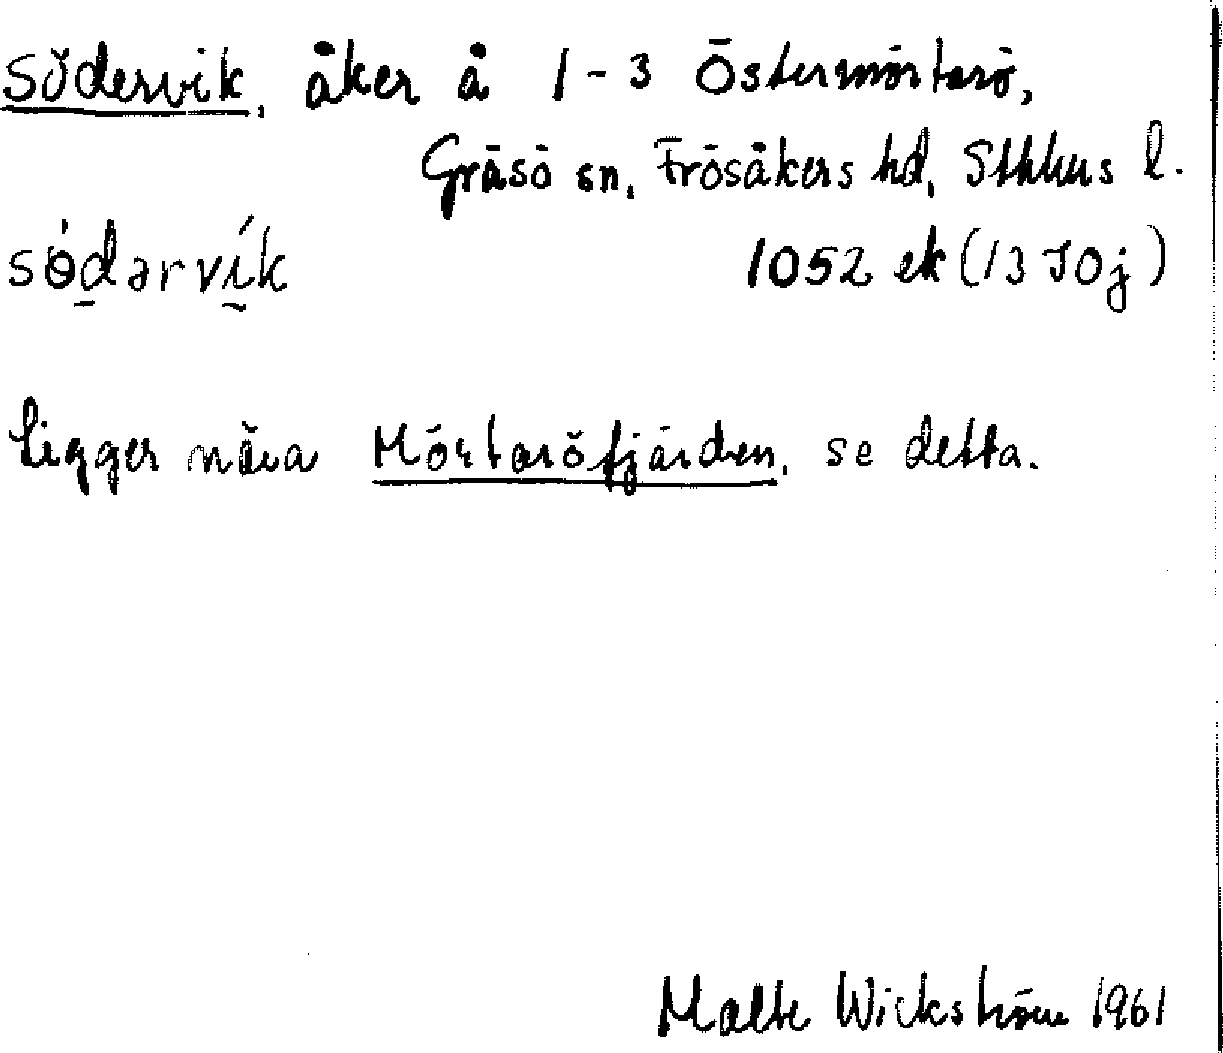 Södervik, åker å 1-3 Östermörtarö,
Gräsö sn, Frösåkers hd, Sthlms l.
södərvik 1052 ek (13 I 0 j)
Ligger nära Mörtaröfjärden, se detta.
Malte Wickström 1961